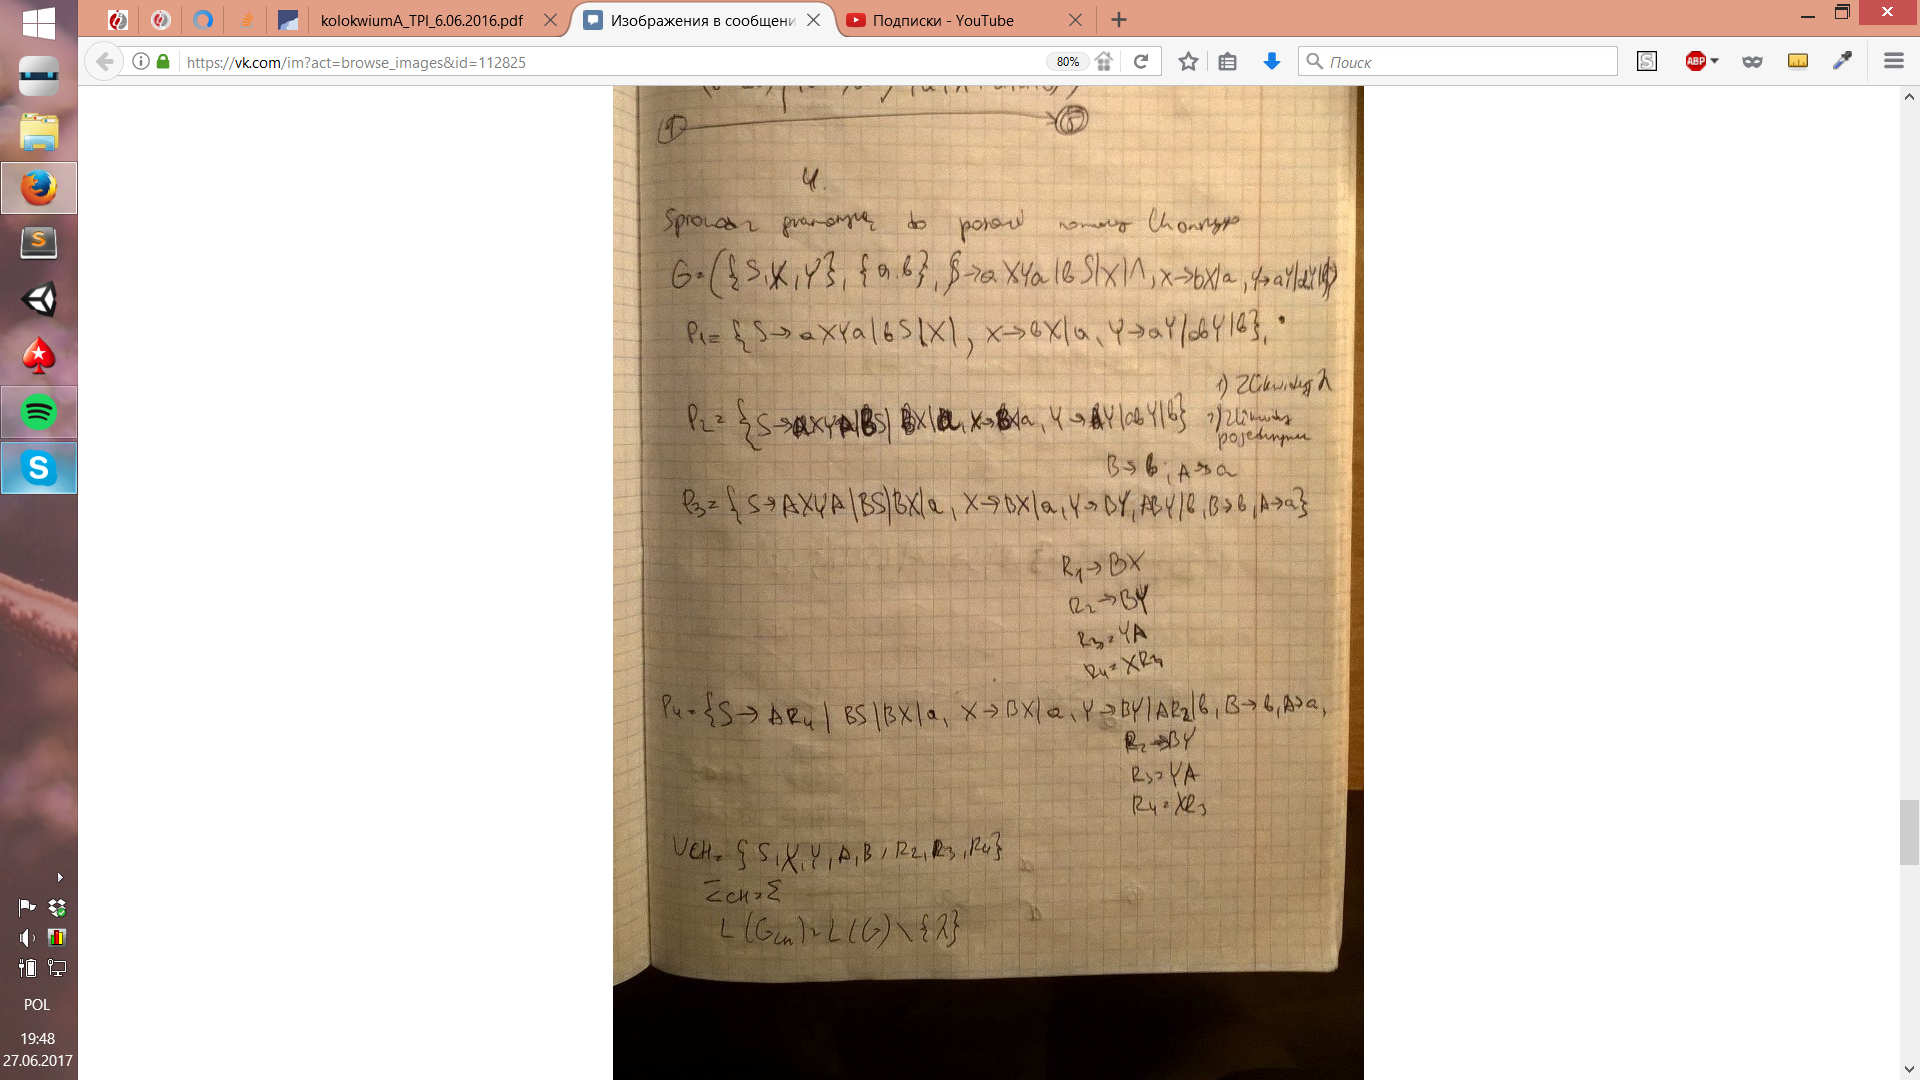 kolokwiumA_TPI_6.06.2016.pdf
Изображения в сообщени
Подписки - YouTube
https://vk.com/im?act=browse_images&id=112825
80%
Поиск
ABP
4.
do
G=({S,X,Y}, {a,b}, S→aXYa|bS|X|Λ, X→bX|a, Y→aY|abY|b)
P1= {S→aXYa|bS|X|, X→bX|a, Y→aY|abY|b},
1) Zlikwiduj λ
P2= {S→AXYA|BS| BX|a, X→BX|a, Y→AY|abY|b}
B→b; A→a
P3= {S→AXYA|BS|BX|a, X→BX|a, Y→BY, ABY|b, B→b, A→a}
R1→BX
R2→BY
R3=YA
R4=XR3
P4={S→AR4| BS|BX|a, X→BX|a, Y→BY|AR2|b, B→b, A→a,
R2→BY
R3=YA
R4=XR3
VCH= {S,X,Y,A,B,R2,R3,R4}
ΣCH=Σ
L(GCH)=L(G)\{λ}
POL
19:48
27.06.2017